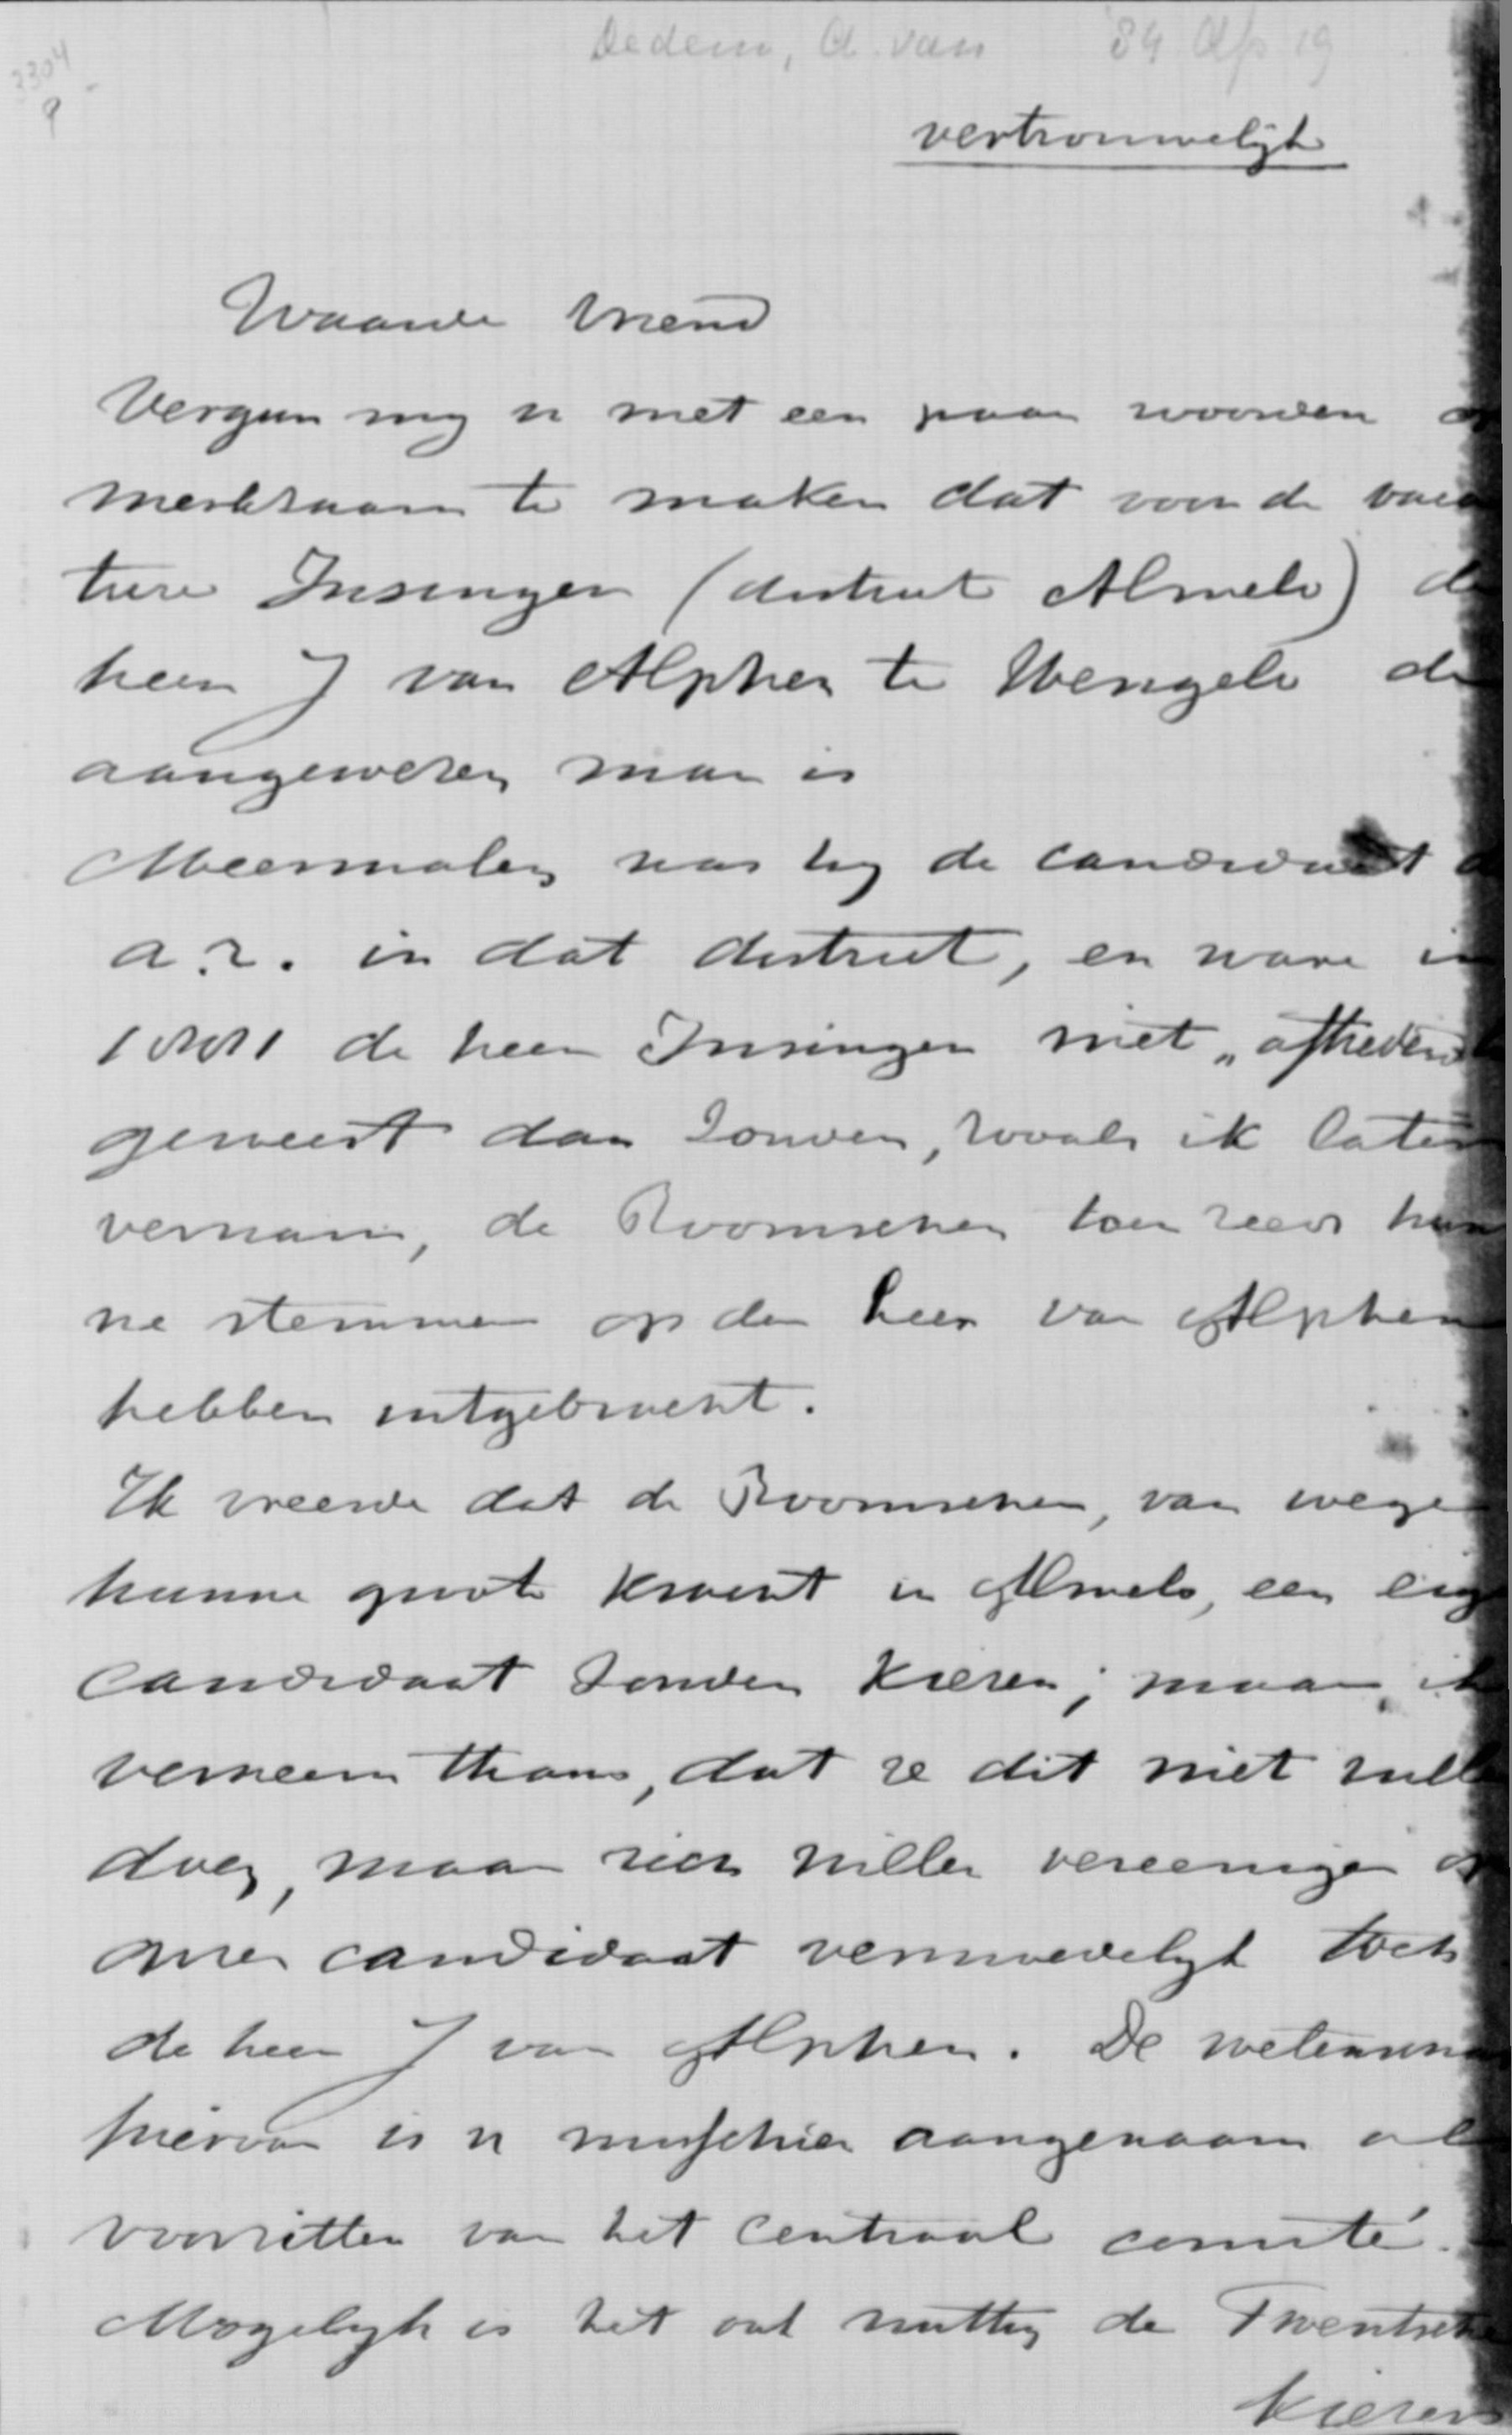 Dedem, A. van '84 Ap 19
3304
9
vertrouwelijk
Waarde Vriend
Vergun mij u met een paar woorden op
merkzaam te maken dat voor de vaca
ture Insinger (district Almelo) de
heer J van Alphen te Hengelo de
aangewezen man is
Meermalen was hij de candidaat d
a.r. in dat district, en ware in
1881 de heer Insinger niet „aftredend
geweest dan zouden, zooals ik later
vernam, de Roomschen toen reeds hun
ne stemmen op den heer van Alphen
hebben uitgebracht.
Ik vreesde dat de Roomschen, van wege
hunne groote kracht in Almelo, een eig
candidaat zouden kiezen; maar ik
verneem thans, dat ze dit niet zulle
doen, maar zich willen vereenigen op
onzen candidaat vermoedelijk toch
de heer J van Alphen. De wetenscha
hiervan is u misschien aangenaam al
voorzitter van het centraal comité.
Mogelijk is het ook nuttig de Twentsche
kiezers